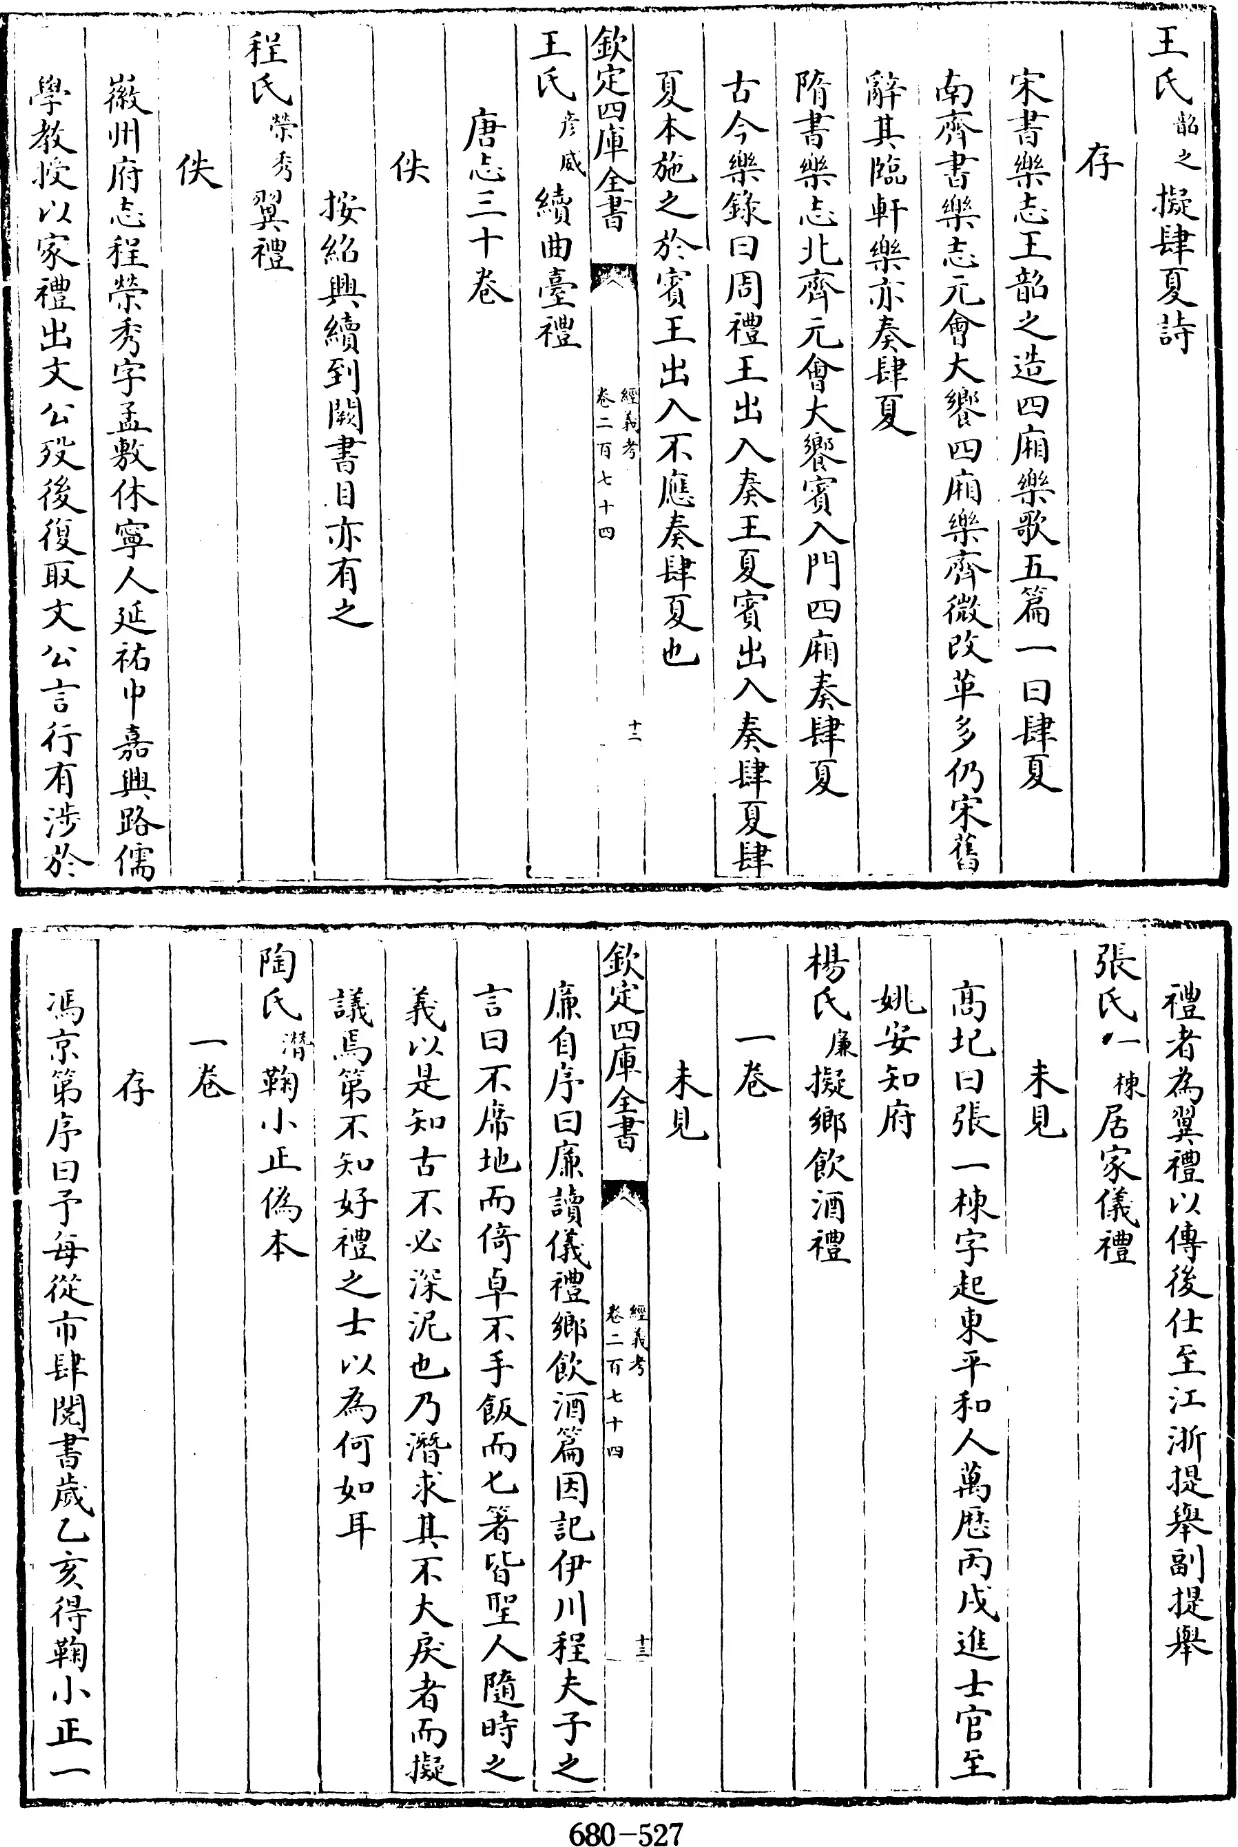 王氏韶之擬肆夏詩
存
宋書樂志王韶之造四廂樂歌五篇一曰肆夏
南齊書樂志元會大饗四廂樂齊微改革多仍宋舊
辭其臨軒樂亦奏肆夏
隋書樂志北齊元會大饗賓入門四廂奏肆夏
古今樂錄曰周禮王出入奏王夏賓出入奏肆夏肆
夏本施之於賓王出入不應奏肆夏也
欽定四庫全書
經義考
卷二百七十四
十二
王氏彦威續曲臺禮
唐志三十卷
佚
按紹興續到闕書目亦有之
程氏榮秀翼禮
佚
徽州府志程榮秀字孟敷休寧人延祐中嘉興路儒
學教授以家禮出文公歿後復取文公言行有涉於
禮者為翼禮以傳後仕至江浙提舉副提舉
張氏一棟居家儀禮
未見
高圮曰張一棟字起東平和人萬厯丙戌進士官至
姚安知府
楊氏廉擬鄉飲酒禮
一卷
未見
欽定四庫全書
經義考
卷二百七十四
十三
廉自序曰廉讀儀禮鄉飲酒篇因記伊川程夫子之
言曰不席地而倚卓不手飯而匕箸皆聖人隨時之
義以是知古不必深泥也乃潛求其不大戾者而擬
議焉第不知好禮之士以為何如耳
陶氏潛鞠小正偽本
一卷
存
馮京第序曰予每從市肆閱書歲乙亥得鞠小正一
680-527